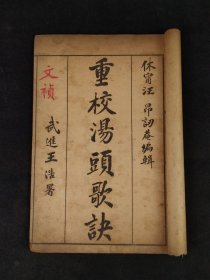 休甯汪昂訒菴編輯
重校湯頭歌訣
武進王浩署
文禎